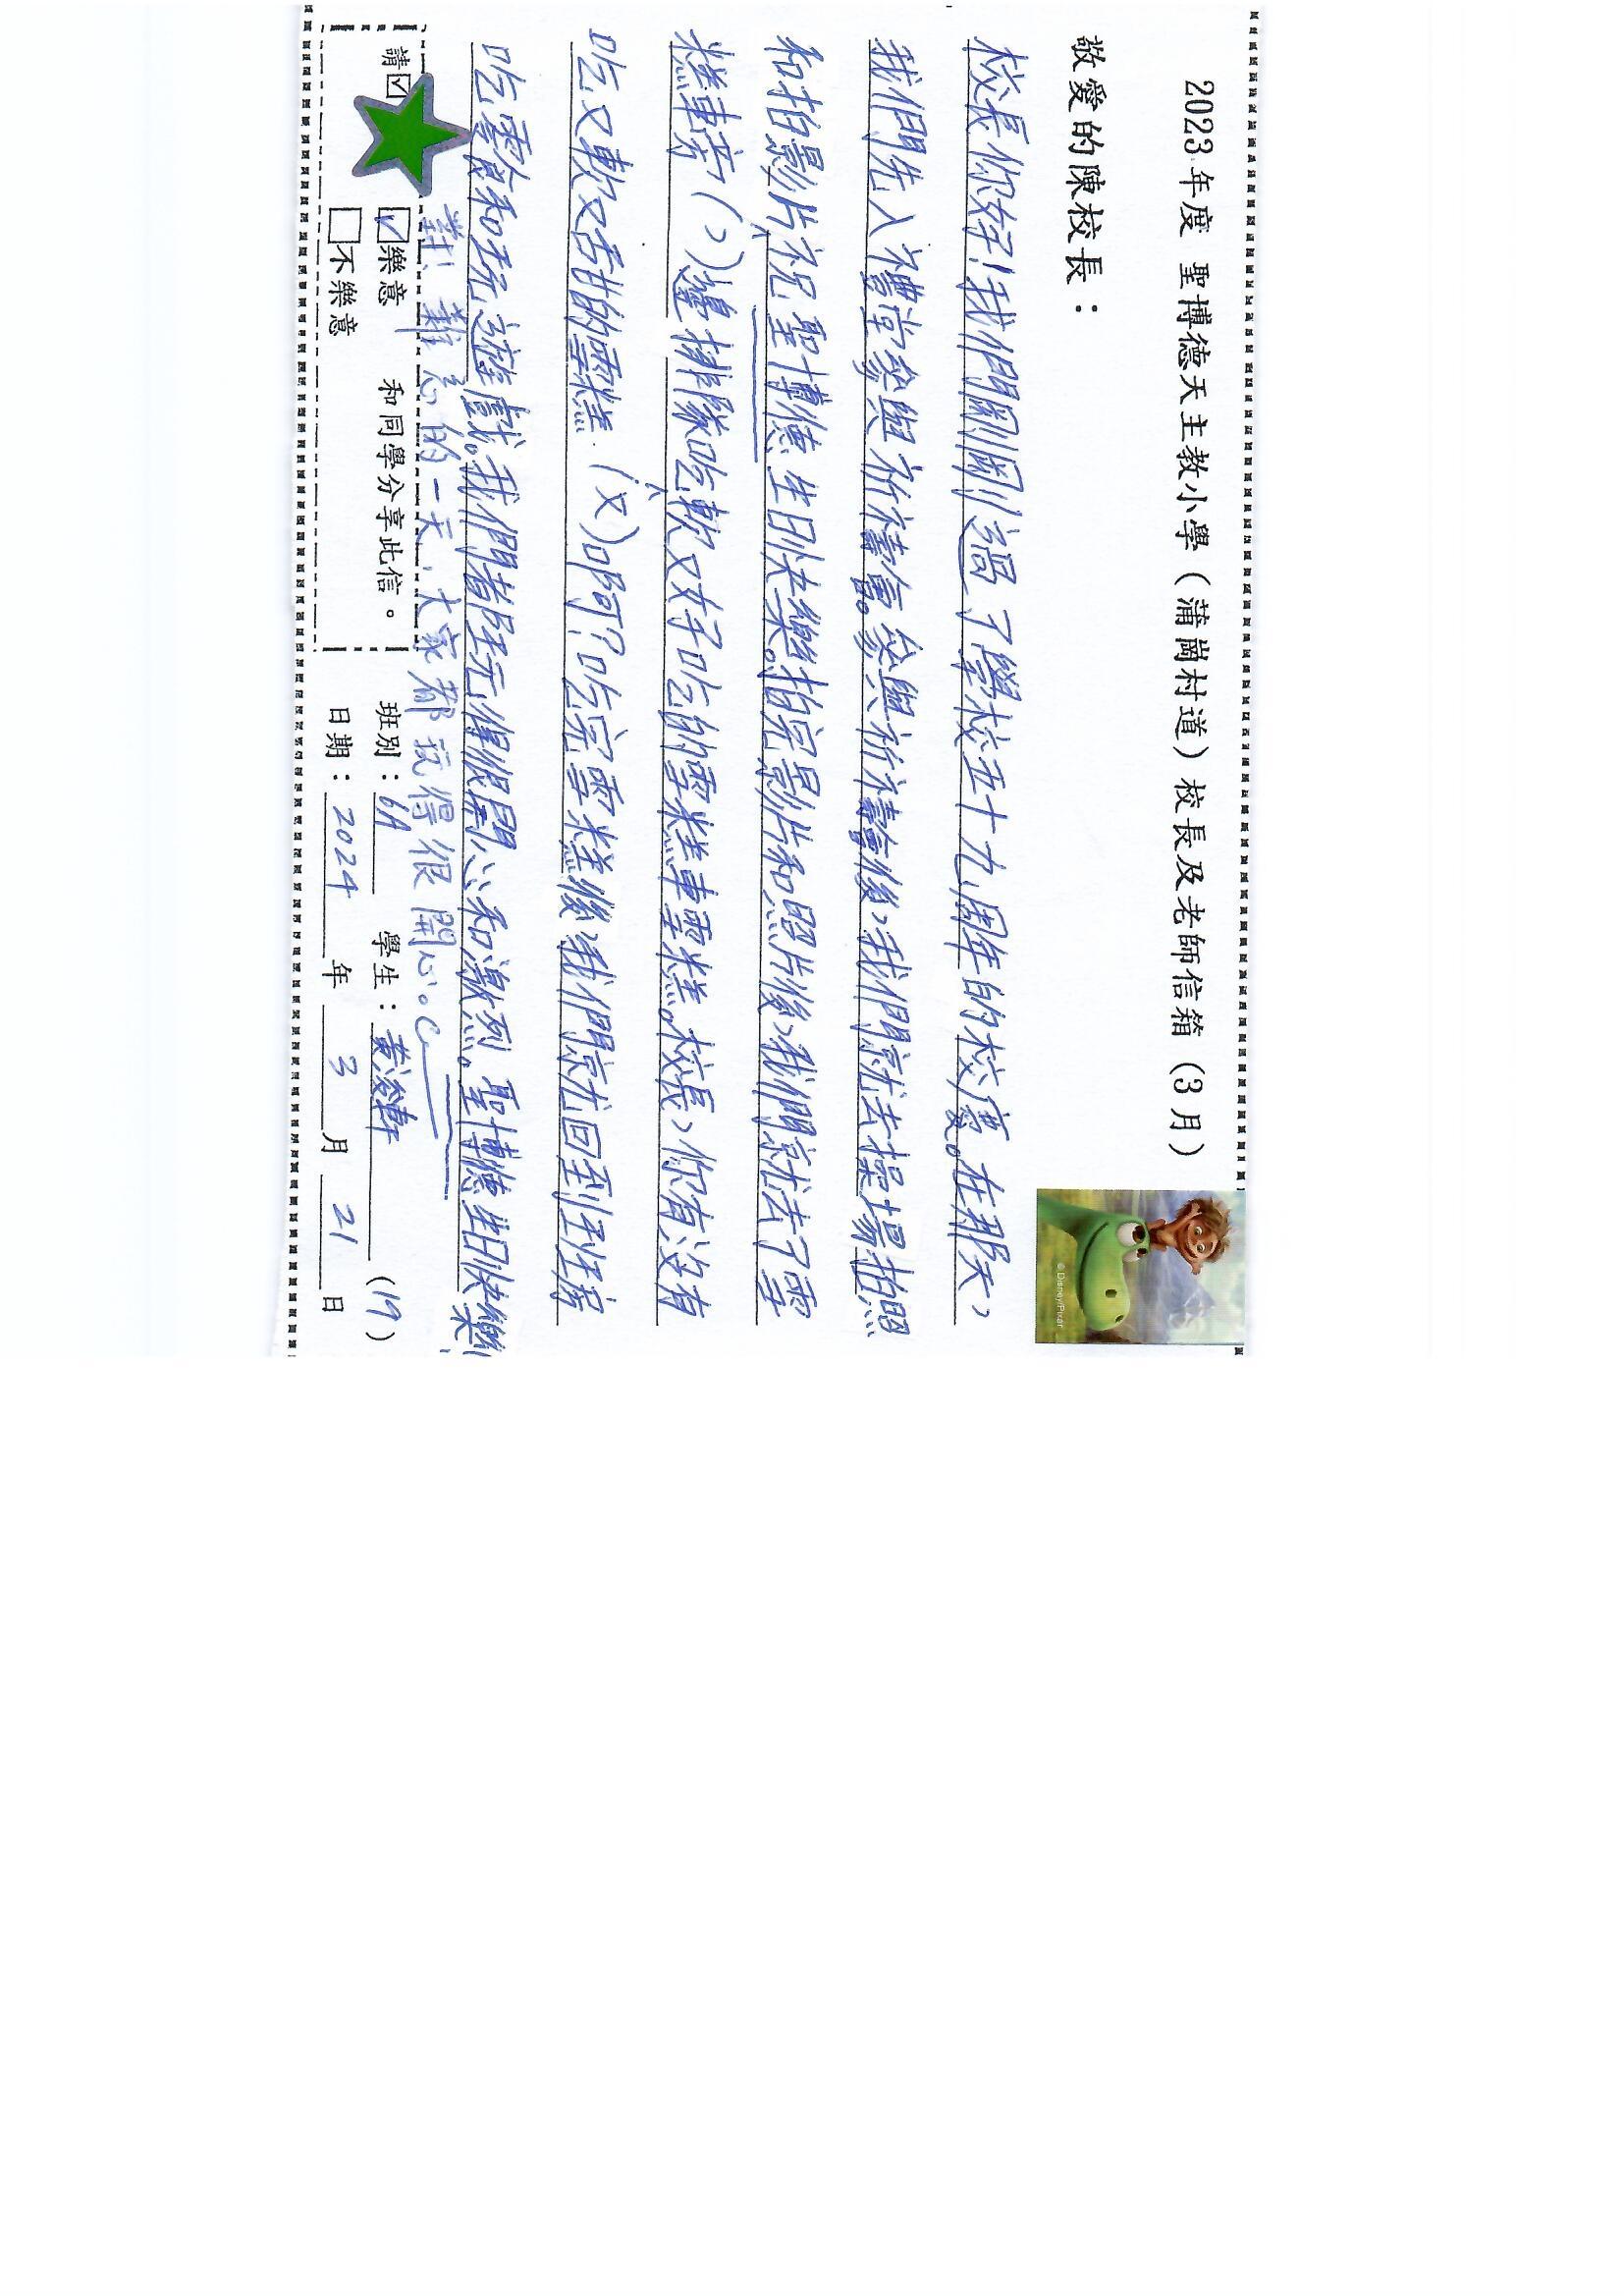 2023年度 聖博德天主教小學（蒲崗村道）校長及老師信箱（3月）
© Disney/Pixar
敬愛的陳校長：
校長你好！我們剛剛過了學校五十九周年的校慶。在那天，
我們先入禮堂參與祈禱會。參與祈禱會後，我們就去操場拍照
和拍影片祝聖博德生日快樂。拍完影片和照片後，我們就去了雪
糕車旁（，）邊排隊吃軟又好吃的雪糕車雪糕。校長，你有沒有
吃又軟又香甜的雪糕（又）啊？吃完雪糕後，我們就回到班房
吃零食和玩遊戲。我們都玩得很開心和激烈。聖博德生日快樂！
對！難忘的一天，大家都玩得很開心。C
請☑
☑樂意
□不樂意
和同學分享此信。
班別：6A 學生：黃浚軒 (19)
日期：2024年3月21日